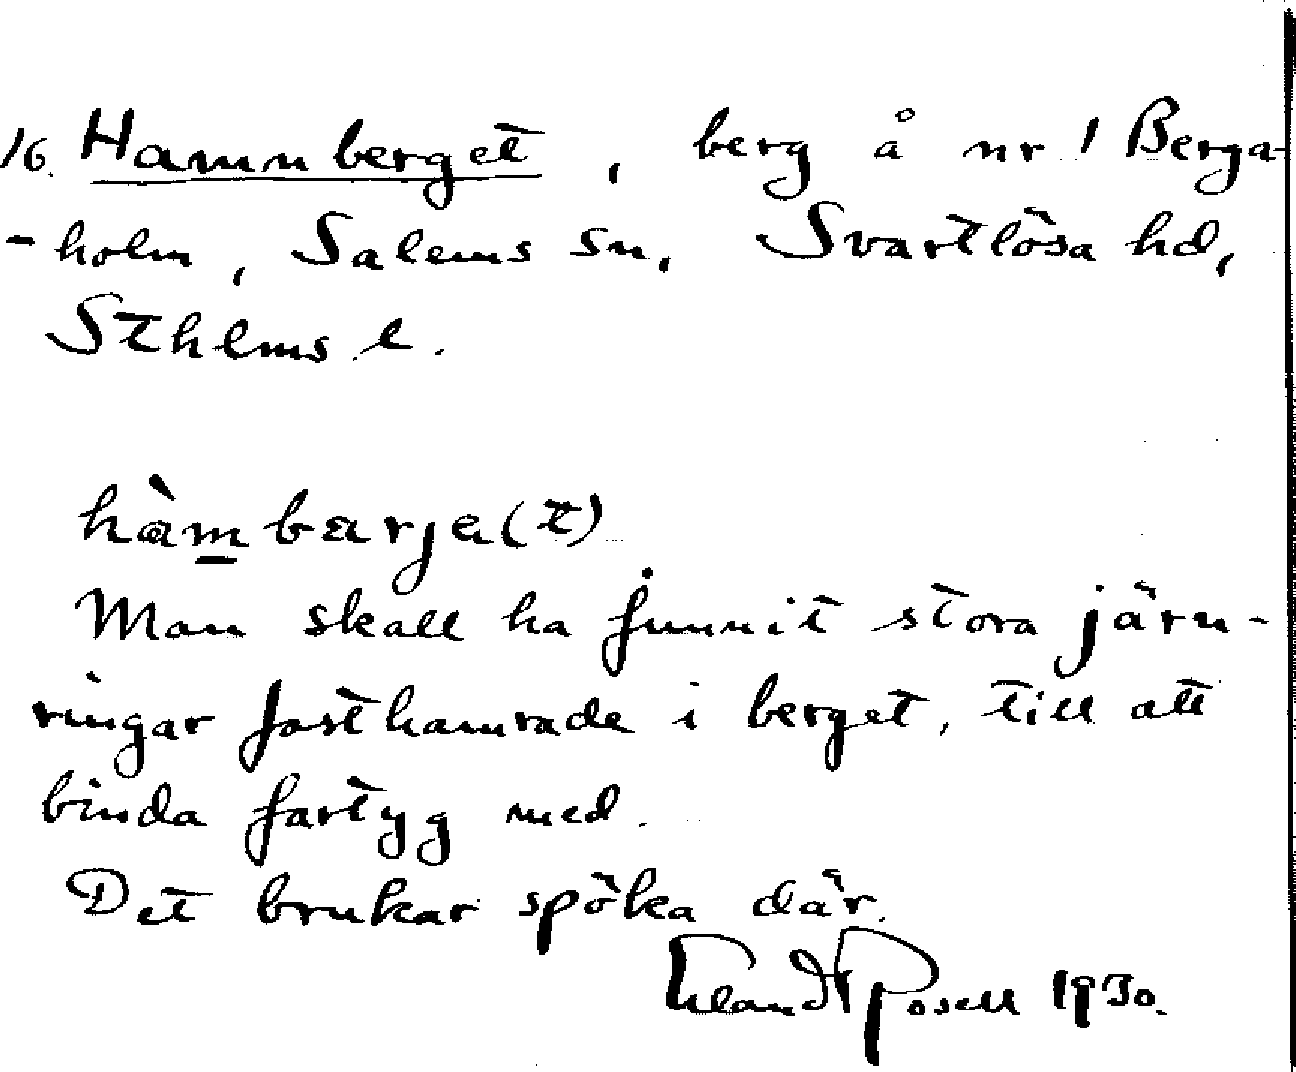 16. Hamnberget, berg å nr 1 Berga-
-holm, Salems sn, Svartlösa hd,
Sthlms l.
hàmbarja(t)
Man skall ha funnit stora järn-
ringar fasthamrade i berget, till att
binda fartyg med.
Det brukar spöka där.
Erland Rosell 1930.